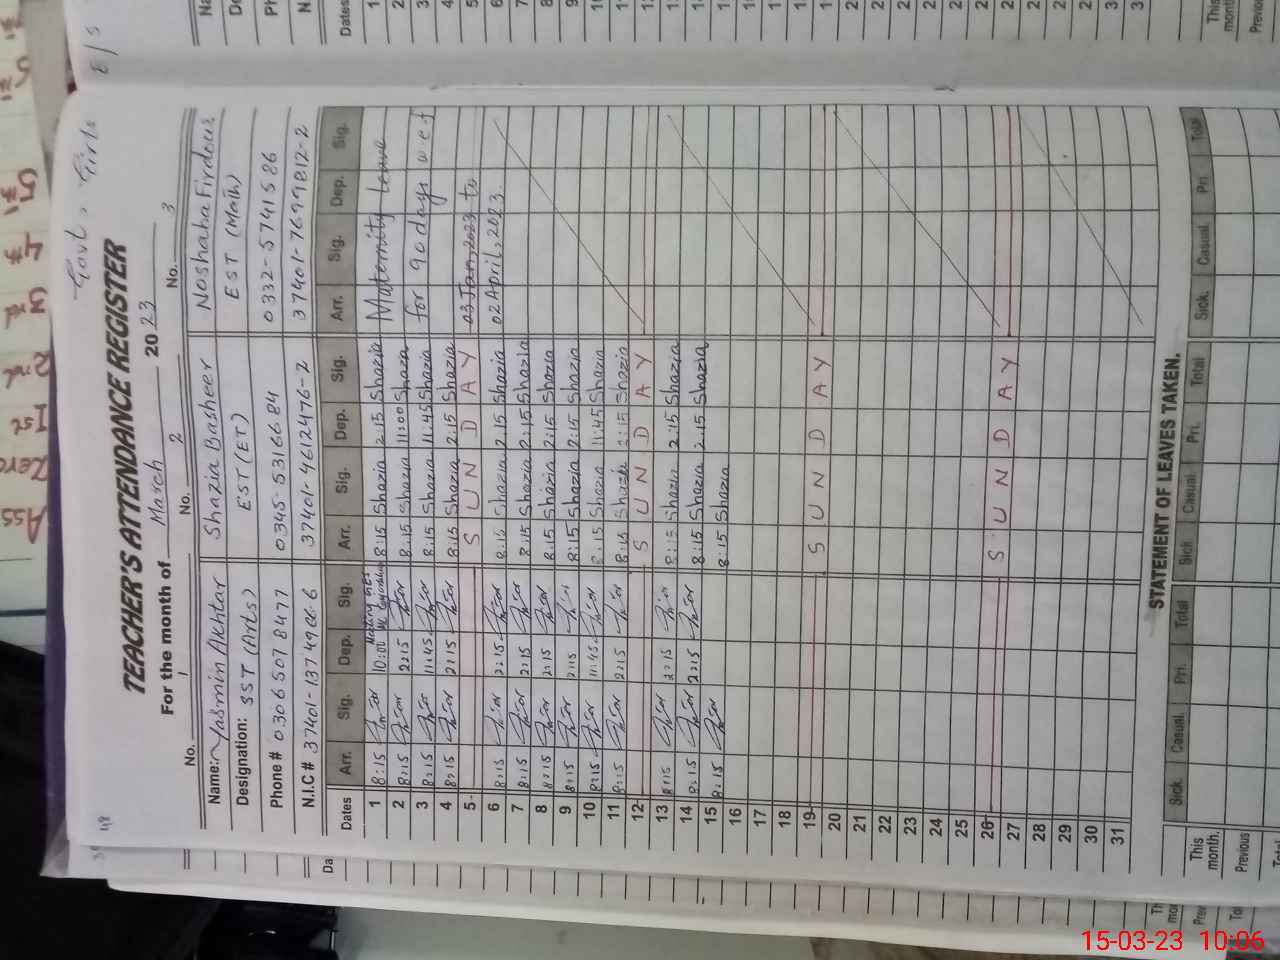 Govt. Girls E/S
TEACHER'S ATTENDANCE REGISTER
For the month of March 2023
No. 1 No. 2 No. 3
Name: Yasmin Akhtar Shazia Basheer Noshaba Firdous
Designation: SST (Arts) EST (ET) EST (Math)
Phone # 0306 507 8477 0345-5316684 0332-5741586
N.I.C # 37401-1374966-6 37401-4612476-2 37401-7699812-2
Dates Arr. Sig. Dep. Sig. Arr. Sig. Dep. Sig. Arr. Sig. Dep. Sig.
1 8:15 10:00 Meeting 8:15 Shazia 2:15 Shazia Maternity Leave
2 8:15 2:15 8:15 Shazia 11:00 Shazia for 90 days w.e.f
3 8:15 11:45 8:15 Shazia 11:45 Shazia 03 Jan, 2023 to
4 8:15 2:15 8:15 Shazia 2:15 Shazia 02 April, 2023.
5 SUNDAY
6 8:15 2:15 8:15 Shazia 2:15 Shazia
7 8:15 2:15 8:15 Shazia 2:15 Shazia
8 8:15 2:15 8:15 Shazia 2:15 Shazia
9 8:15 2:15 8:15 Shazia 2:15 Shazia
10 8:15 11:45 8:15 Shazia 11:45 Shazia
11 8:15 2:15 8:15 Shazia 2:15 Shazia
12 SUNDAY
13 8:15 2:15 8:15 Shazia 2:15 Shazia
14 8:15 2:15 8:15 Shazia 2:15 Shazia
15 8:15 8:15 Shazia
16
17
18
19 SUNDAY
20
21
22
23
24
25
26 SUNDAY
27
28
29
30
31
STATEMENT OF LEAVES TAKEN.
Sick Casual Pri. Total Sick Casual Pri. Total Sick. Casual. Pri Total
This month.
Previous
Total
Ass Zero 1st 2nd 3rd 4th 5th
15-03-23 10:06